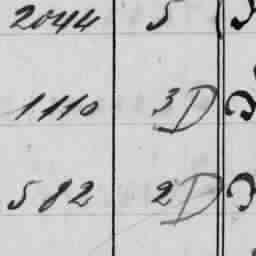 2044 5
1110 3D
582 2D